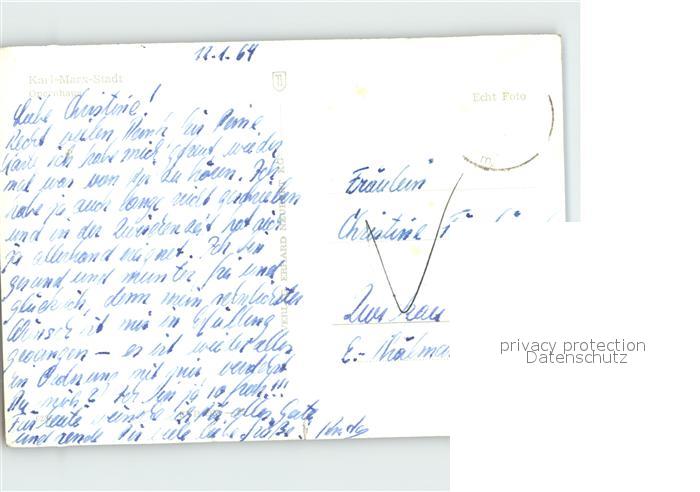 12.1.64
Karl-Marx-Stadt
Opernhaus
Echt Foto
Liebe Christine!
Recht vielen Dank für Deine
Karte ich habe mich gefreut wieder
mal was von Dir zu hören. Ich
habe ja auch lange nicht geschrieben
und in der Zwischenzeit hat sich
ja allerhand ereignet. Ich bin
gesund und munter, frei und
glücklich, denn mein sehnlichster
Wunsch ist mir in Erfüllung
gegangen – es ist wieder alles
in Ordnung mit mir verstehst
Du mich? Ich bin ja so froh!!!
Für heute wünsche ich Dir alles Gute
und sende Dir viele liebe Grüße.
Fräulein
Christine
privacy protection
Datenschutz